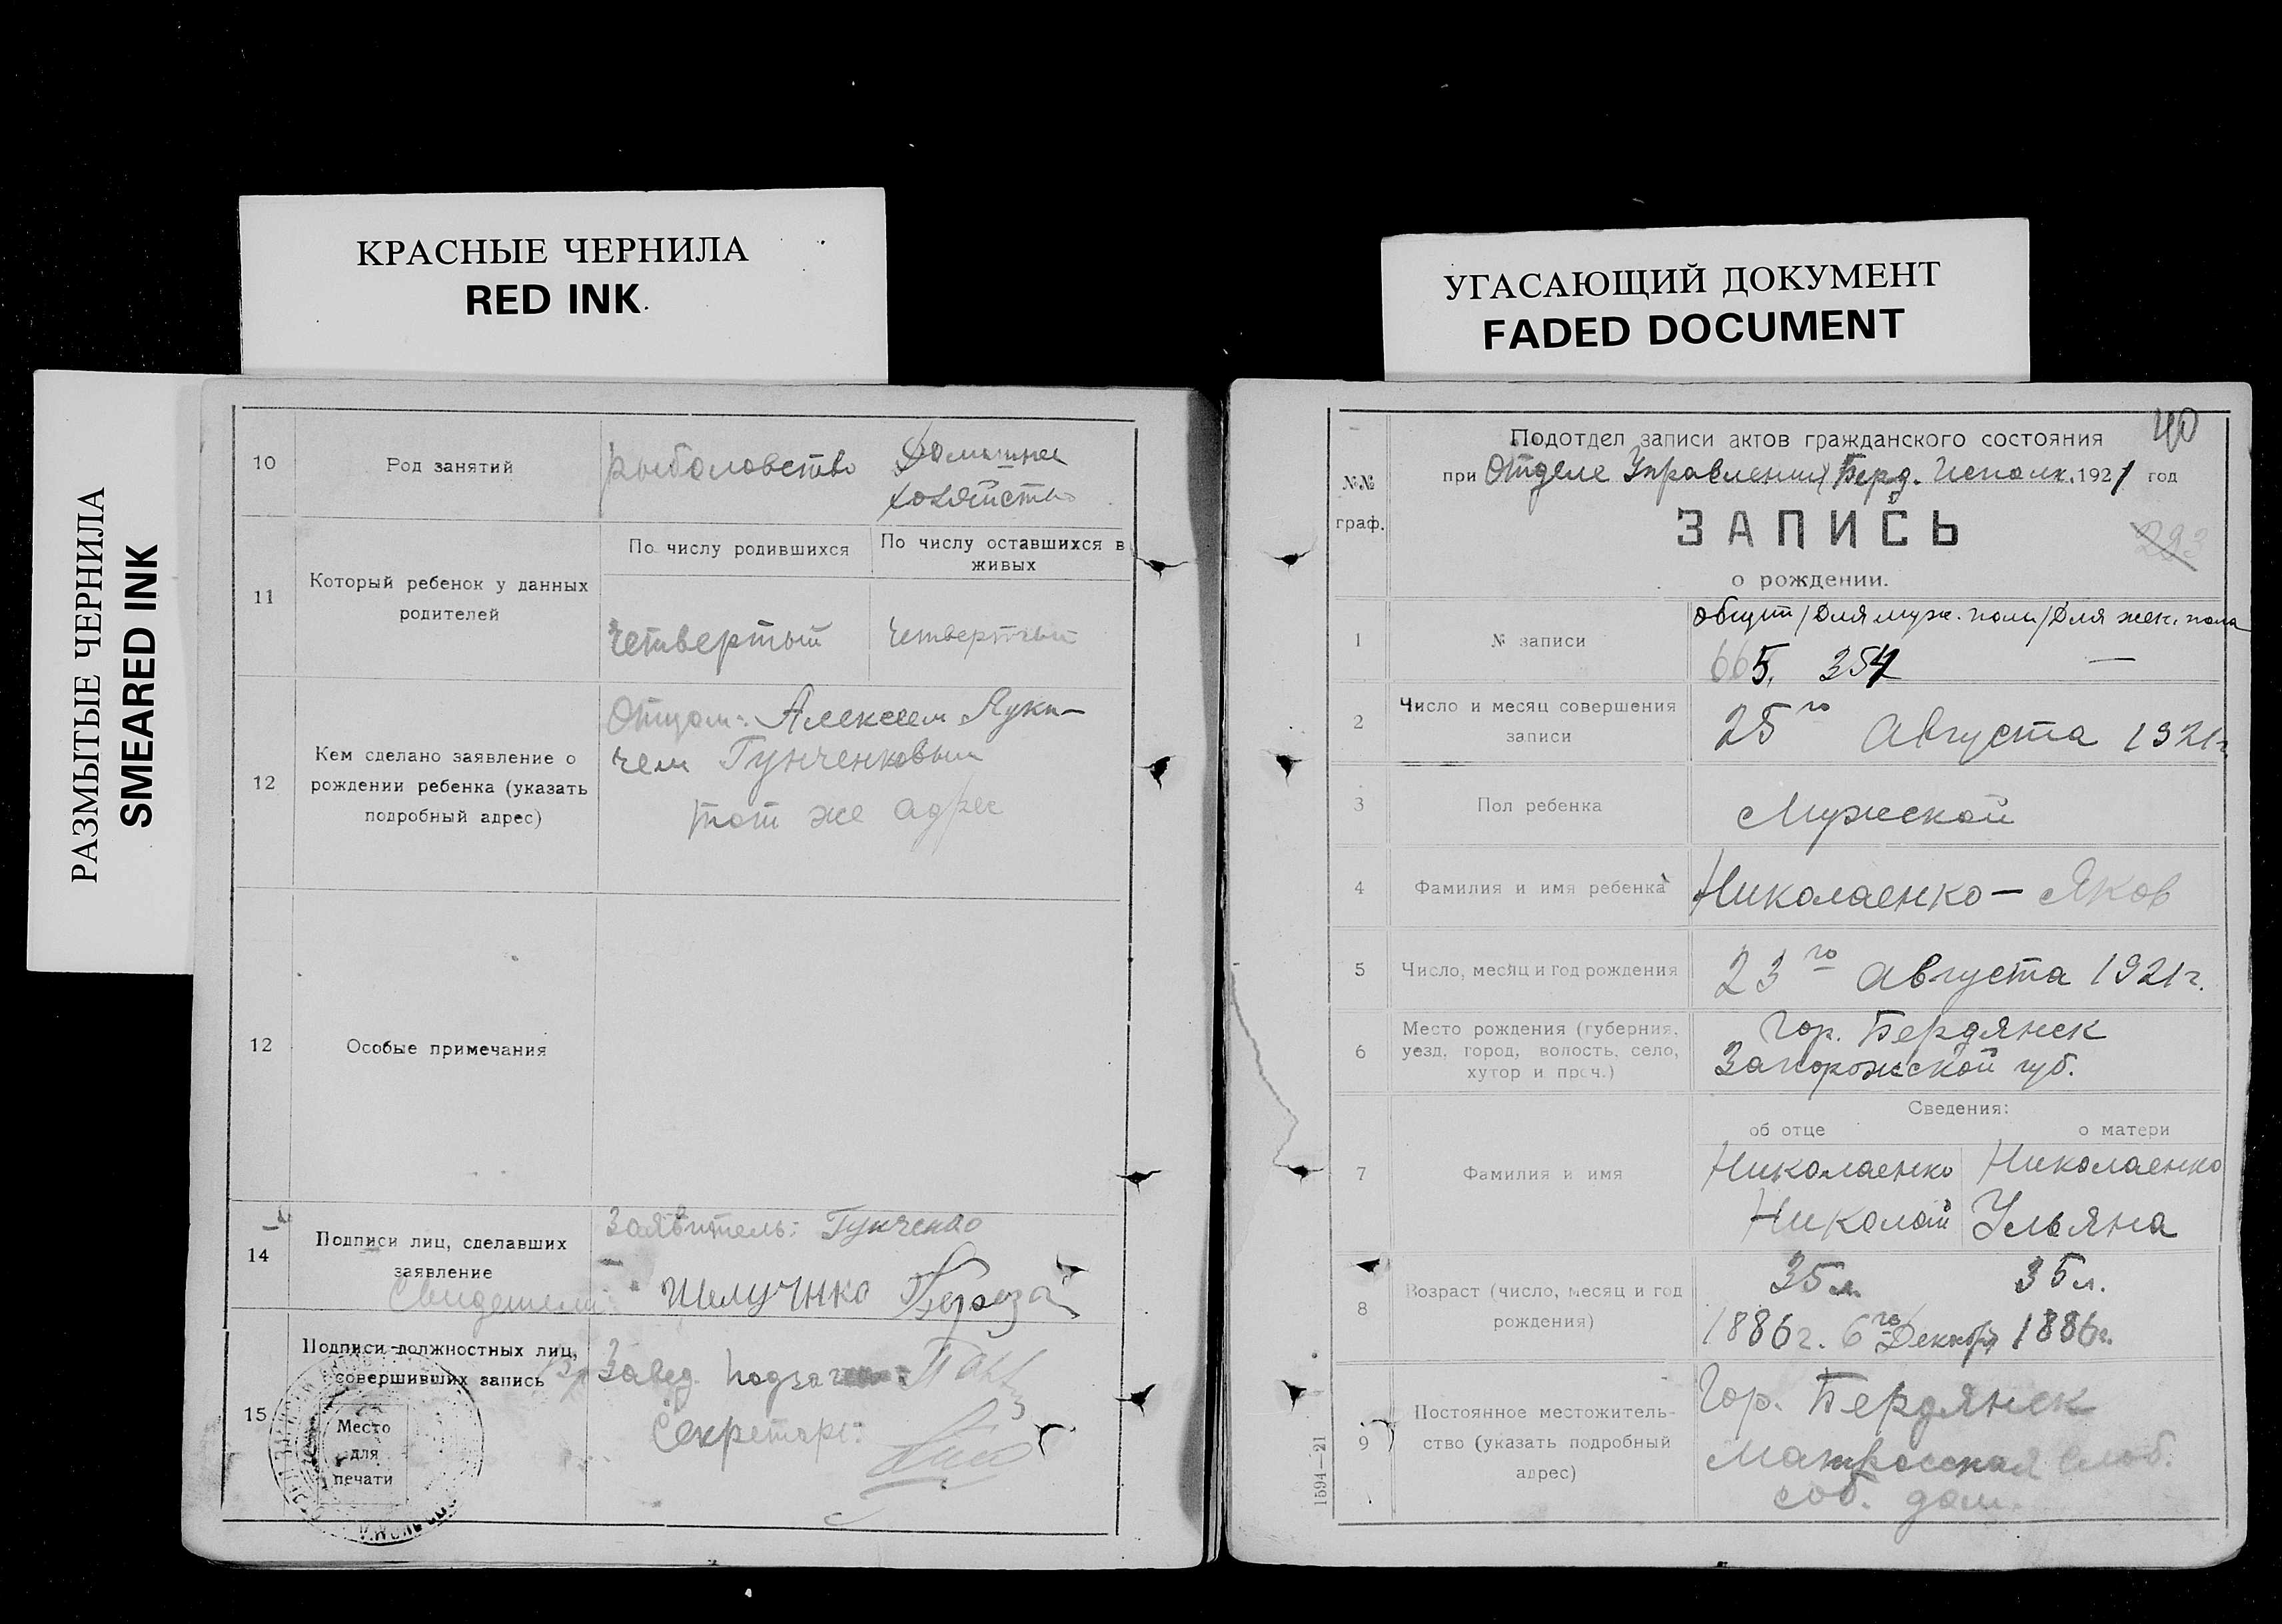 КРАСНЫЕ ЧЕРНИЛА
RED INK
УГАСАЮЩИЙ ДОКУМЕНТ
FADED DOCUMENT
РАЗМЫТЫЕ ЧЕРНИЛА
SMEARED INK
10 Род занятий рыболовство Домашнее
хозяйство
11 Который ребенок у данных
родителей
По числу родившихся По числу оставшихся в
живых
четвертый четвертый
12 Кем сделано заявление о
рождении ребенка (указать
подробный адрес)
Отцом: Алексеем Луки-
чем Гунченковым
тот же адрес
12 Особые примечания
14 Подписи лиц, сделавших
заявление
Заявитель: Гунченко
Свидетели:
15 Подписи должностных лиц,
совершивших запись
Завед.
Секретарь:
Место
для
печати
40
№№
граф.
Подотдел записи актов гражданского состояния
при Отделе Управления Берд. Исполк. 1921 год
ЗАПИСЬ
293
о рождении.
общий / Для муж. пола / Для жен. пола
1 № записи 665. 354 —
2 Число и месяц совершения
записи
25го Августа 1921г.
3 Пол ребенка Мужской
4 Фамилия и имя ребенка Николаенко — Яков
5 Число, месяц и год рождения 23го августа 1921г.
6 Место рождения (губерния,
уезд, город, волость, село,
хутор и проч.)
Гор. Бердянск
Запорожской губ.
Сведения:
об отце о матери
7 Фамилия и имя
Николаенко Николаенко
Николай Ульяна
8 Возраст (число, месяц и год
рождения)
35 л. 35 л.
1886г. 6го Декабря 1886г.
9 Постоянное местожитель-
ство (указать подробный
адрес)
Гор. Бердянск
Матросская слоб.
соб. дом.
1594—21